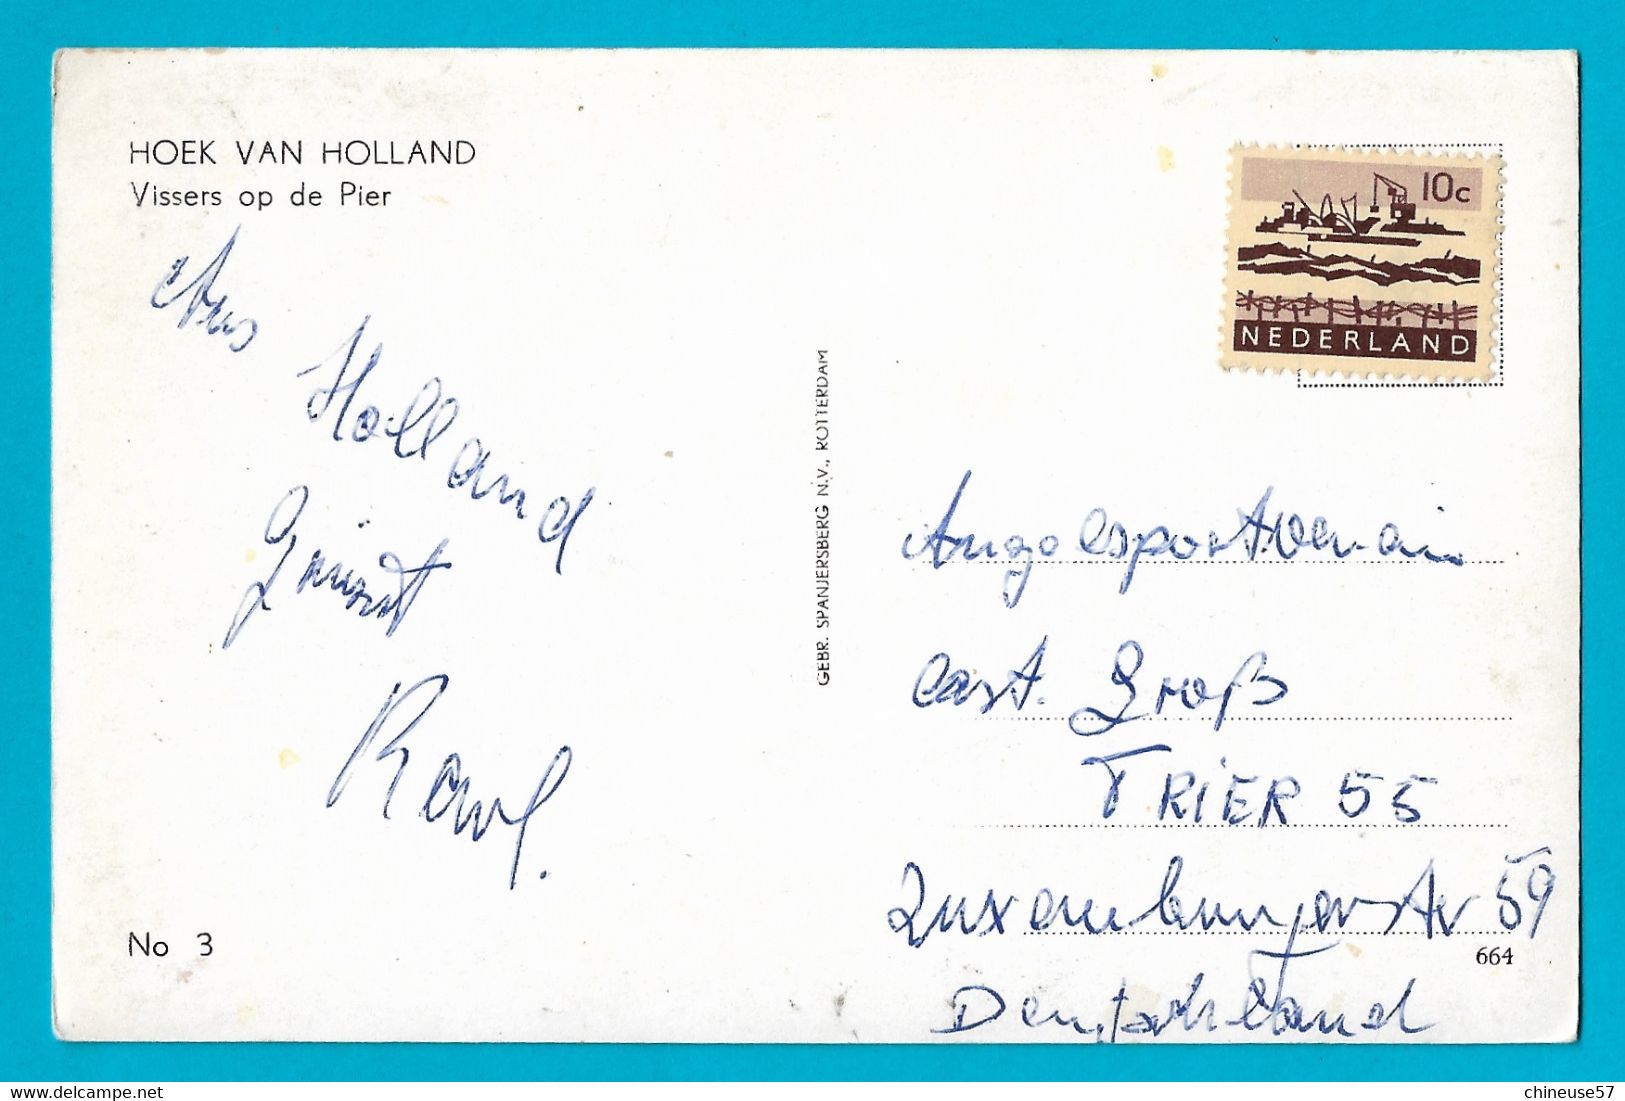 HOEK VAN HOLLAND
Vissers op de Pier
Aus
Holland
Grüßt
Karl.
No 3
GEBR. SPANJERSBERG N.V., ROTTERDAM
10c
NEDERLAND
Angelsportverein
Groß
TRIER 55
Luxemburgerstr 59
664
Deutschland
chineuse57